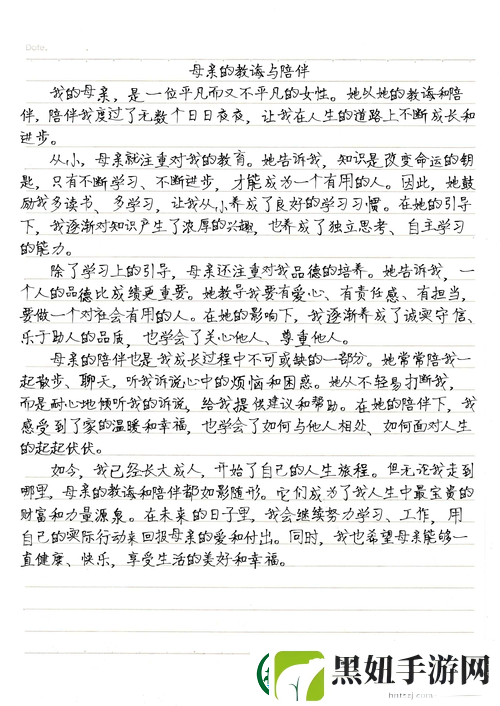 Date.
母亲的教诲与陪伴
我的母亲，是一位平凡而又不平凡的女性。她以她的教诲和陪
伴，陪伴我度过了无数个日日夜夜，让我在人生的道路上不断成长和
进步。
从小，母亲就注重对我的教育。她告诉我，知识是改变命运的钥
匙，只有不断学习、不断进步，才能成为一个有用的人。因此，她鼓
励我多读书、多学习，让我从小养成了良好的学习习惯。在她的引导
下，我逐渐对知识产生了浓厚的兴趣，也养成了独立思考、自主学习
的能力。
除了学习上的引导，母亲还注重对我品德的培养。她告诉我，一
个人的品德比成绩更重要。她教导我要有爱心、有责任感、有担当，
要做一个对社会有用的人。在她的影响下，我逐渐养成了诚实守信、
乐于助人的品质，也学会了关心他人、尊重他人。
母亲的陪伴也是我成长过程中不可或缺的一部分。她常常陪我一
起散步、聊天，听我诉说心中的烦恼和困惑。她从不轻易打断我，
而是耐心地倾听我的诉说，给我提供建议和帮助。在她的陪伴下，我
感受到了家的温暖和幸福，也学会了如何与他人相处、如何面对人生
的起起伏伏。
如今，我已经长大成人，开始了自己的人生旅程。但无论我走到
哪里，母亲的教诲和陪伴都如影随形。它们成为了我人生中最宝贵的
财富和力量源泉。在未来的日子里，我会继续努力学习、工作，用
自己的实际行动来回报母亲的爱和付出。同时，我也希望母亲能够一
直健康、快乐，享受生活的美好和幸福。
黑妞手游网
hntszj.com